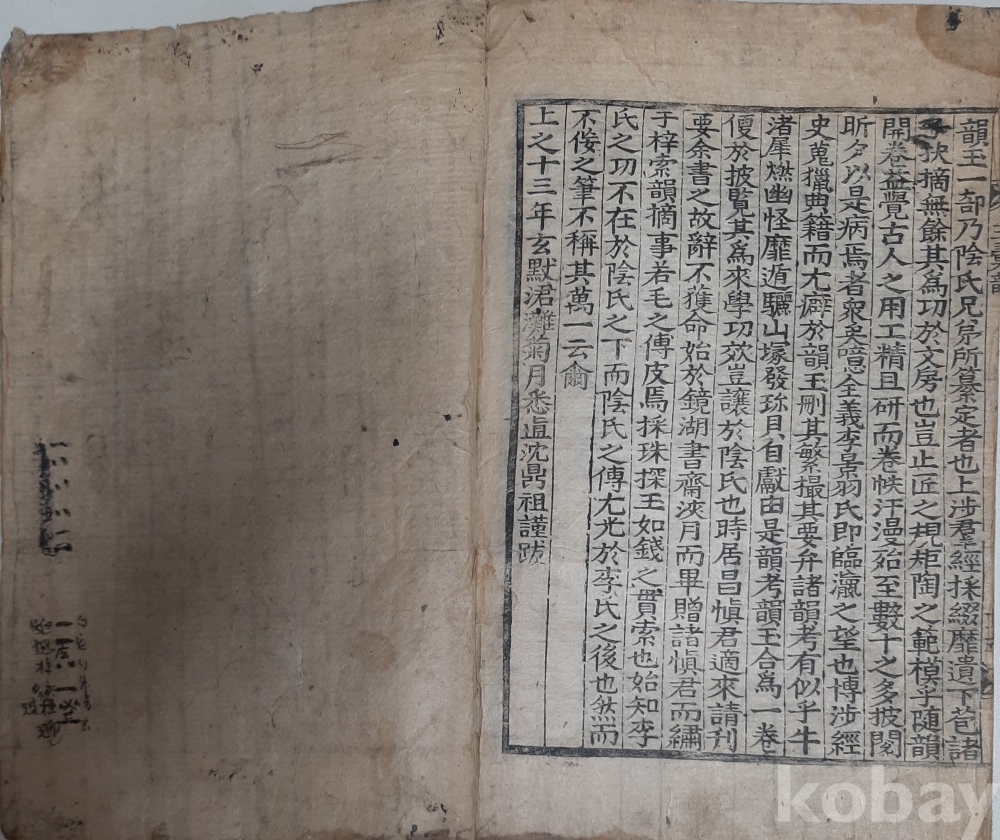 韻玉一部乃陰氏兄弟所纂定者也上涉羣經採綴靡遺下苞諸
子抉摘無餘其爲功於文房也豈止匠之規矩陶之範模乎隨韻
開卷益覺古人之用工精且研而卷帙汗漫殆至數十之多披閱
昕夕以是病焉者衆矣噫全義李景羽氏即臨瀛之望也博涉經
史蒐獵典籍而尤癖於韻玉刪其繁撮其要弁諸韻考有似乎牛
渚犀燃幽怪靡遁驪山塚發珎貝自獻由是韻考韻玉合爲一卷
便於披覧其爲來學功效豈讓於陰氏也時居昌愼君適來請刊
要余書之故辭不獲命始於鏡湖書齋浹月而畢贈諸愼君而繡
于梓索韻摘事若毛之傅皮焉採珠探玉如錢之貫索也始知李
氏之功不在於陰氏之下而陰氏之傳尤光於李氏之後也然而
不侫之筆不稱其萬一云爾
上之十三年玄默涒灘菊月悉直沈鼎祖謹跋
kobay